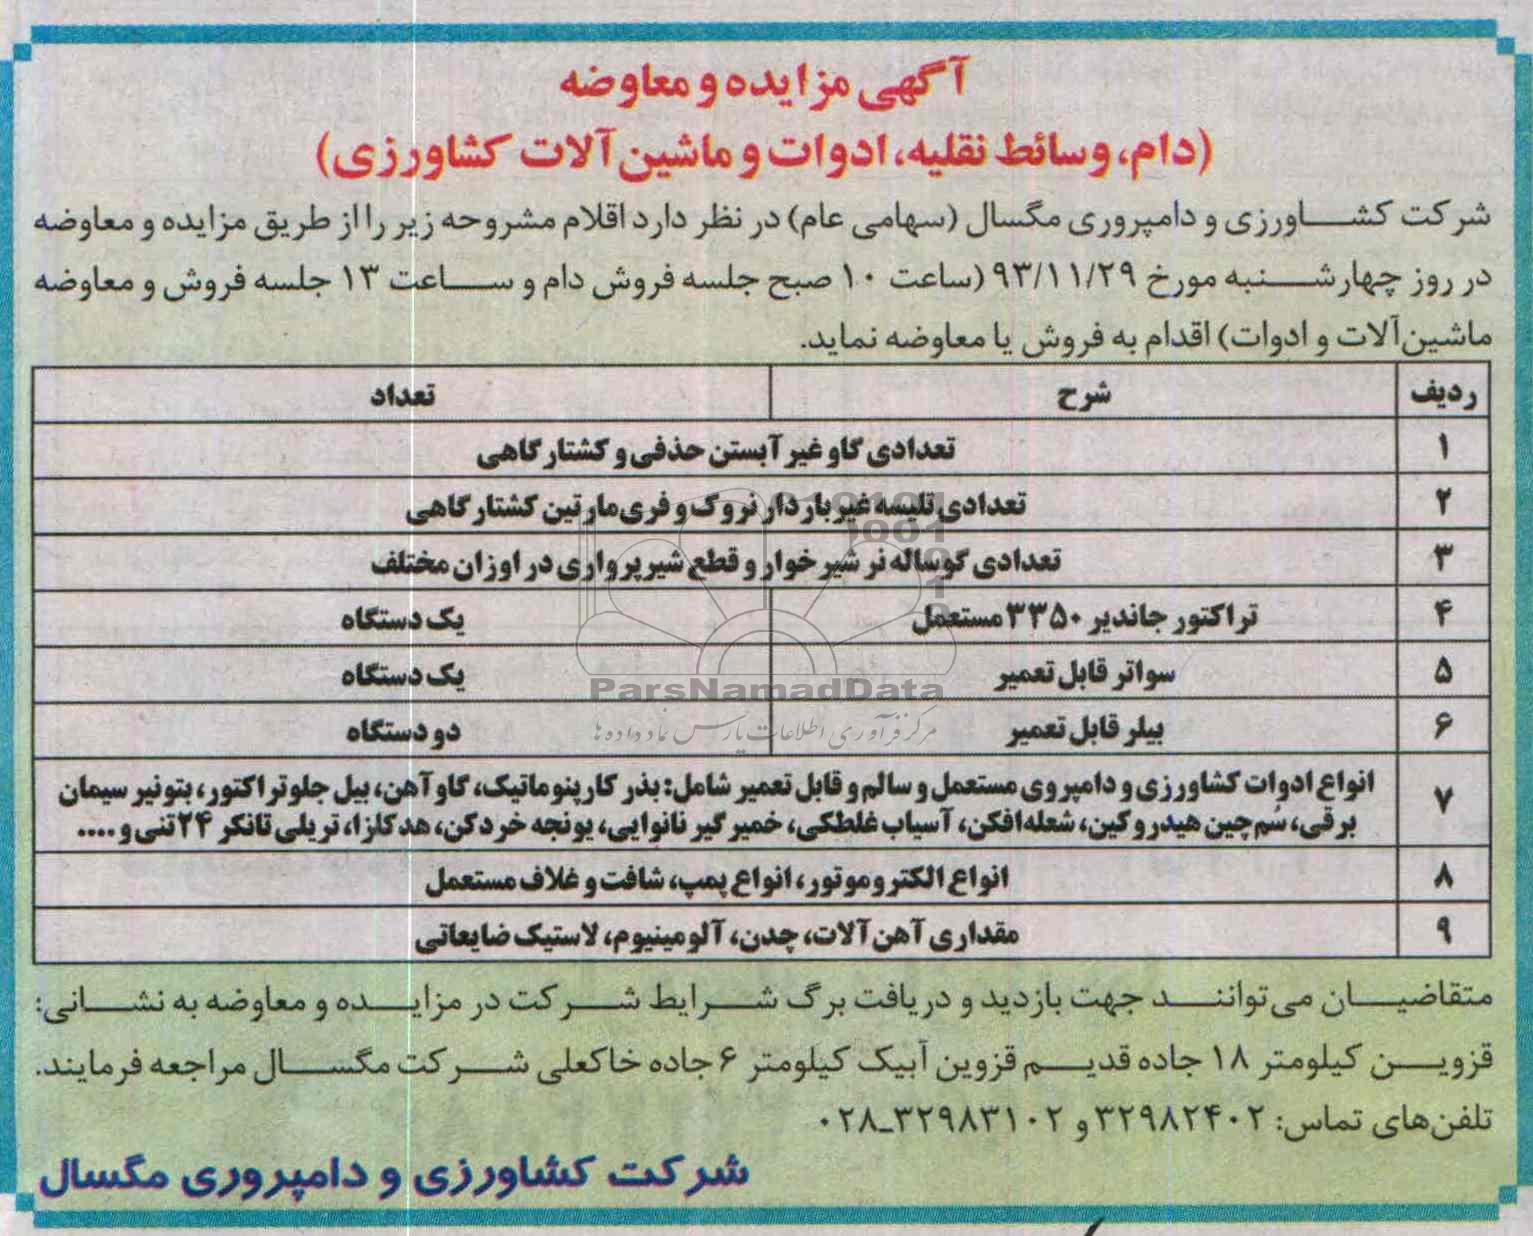 آگهی مزایده و معاوضه
(دام، وسائط نقلیه، ادوات و ماشین آلات کشاورزی)
شرکت کشاورزی و دامپروری مگسال (سهامی عام) در نظر دارد اقلام مشروحه زیر را از طریق مزایده و معاوضه
در روز چهارشنبه مورخ ۹۳/۱۱/۲۹ (ساعت ۱۰ صبح جلسه فروش دام و ساعت ۱۳ جلسه فروش و معاوضه
ماشین‌آلات و ادوات) اقدام به فروش یا معاوضه نماید.
ردیف شرح تعداد
۱ تعدادی گاو غیر آبستن حذفی و کشتارگاهی
۲ تعدادی تلیسه غیربار دار نروک و فری‌مارتین کشتارگاهی
۳ تعدادی گوساله نر شیر خوار و قطع شیر پرواری در اوزان مختلف
۴ تراکتور جاندیر ۳۳۵۰ مستعمل یک دستگاه
۵ سواتر قابل تعمیر یک دستگاه
۶ بیلر قابل تعمیر دو دستگاه
۷ انواع ادوات کشاورزی و دامپروی مستعمل و سالم و قابل تعمیر شامل: بذر کار پنوماتیک، گاوآهن، بیل جلوتراکتور، بتونیر سیمان
برقی، سُم‌چین هیدروکین، شعله‌افکن، آسیاب غلطکی، خمیر گیر نانوایی، یونجه خردکن، هد کلزا، تریلی تانکر ۲۴ تنی و ....
۸ انواع الکتروموتور، انواع پمپ، شافت و غلاف مستعمل
۹ مقداری آهن آلات، چدن، آلومینیوم، لاستیک ضایعاتی
متقاضیان می‌توانند جهت بازدید و دریافت برگ شرایط شرکت در مزایده و معاوضه به نشانی:
قزوین کیلومتر ۱۸ جاده قدیم قزوین آبیک کیلومتر ۶ جاده خاکعلی شرکت مگسال مراجعه فرمایند.
تلفن‌های تماس: ۳۲۹۸۲۴۰۲ و ۳۲۹۸۳۱۰۲-۰۲۸
شرکت کشاورزی و دامپروری مگسال
ParsNamadData
مرکز فرآوری اطلاعات پارس نماد داده ها